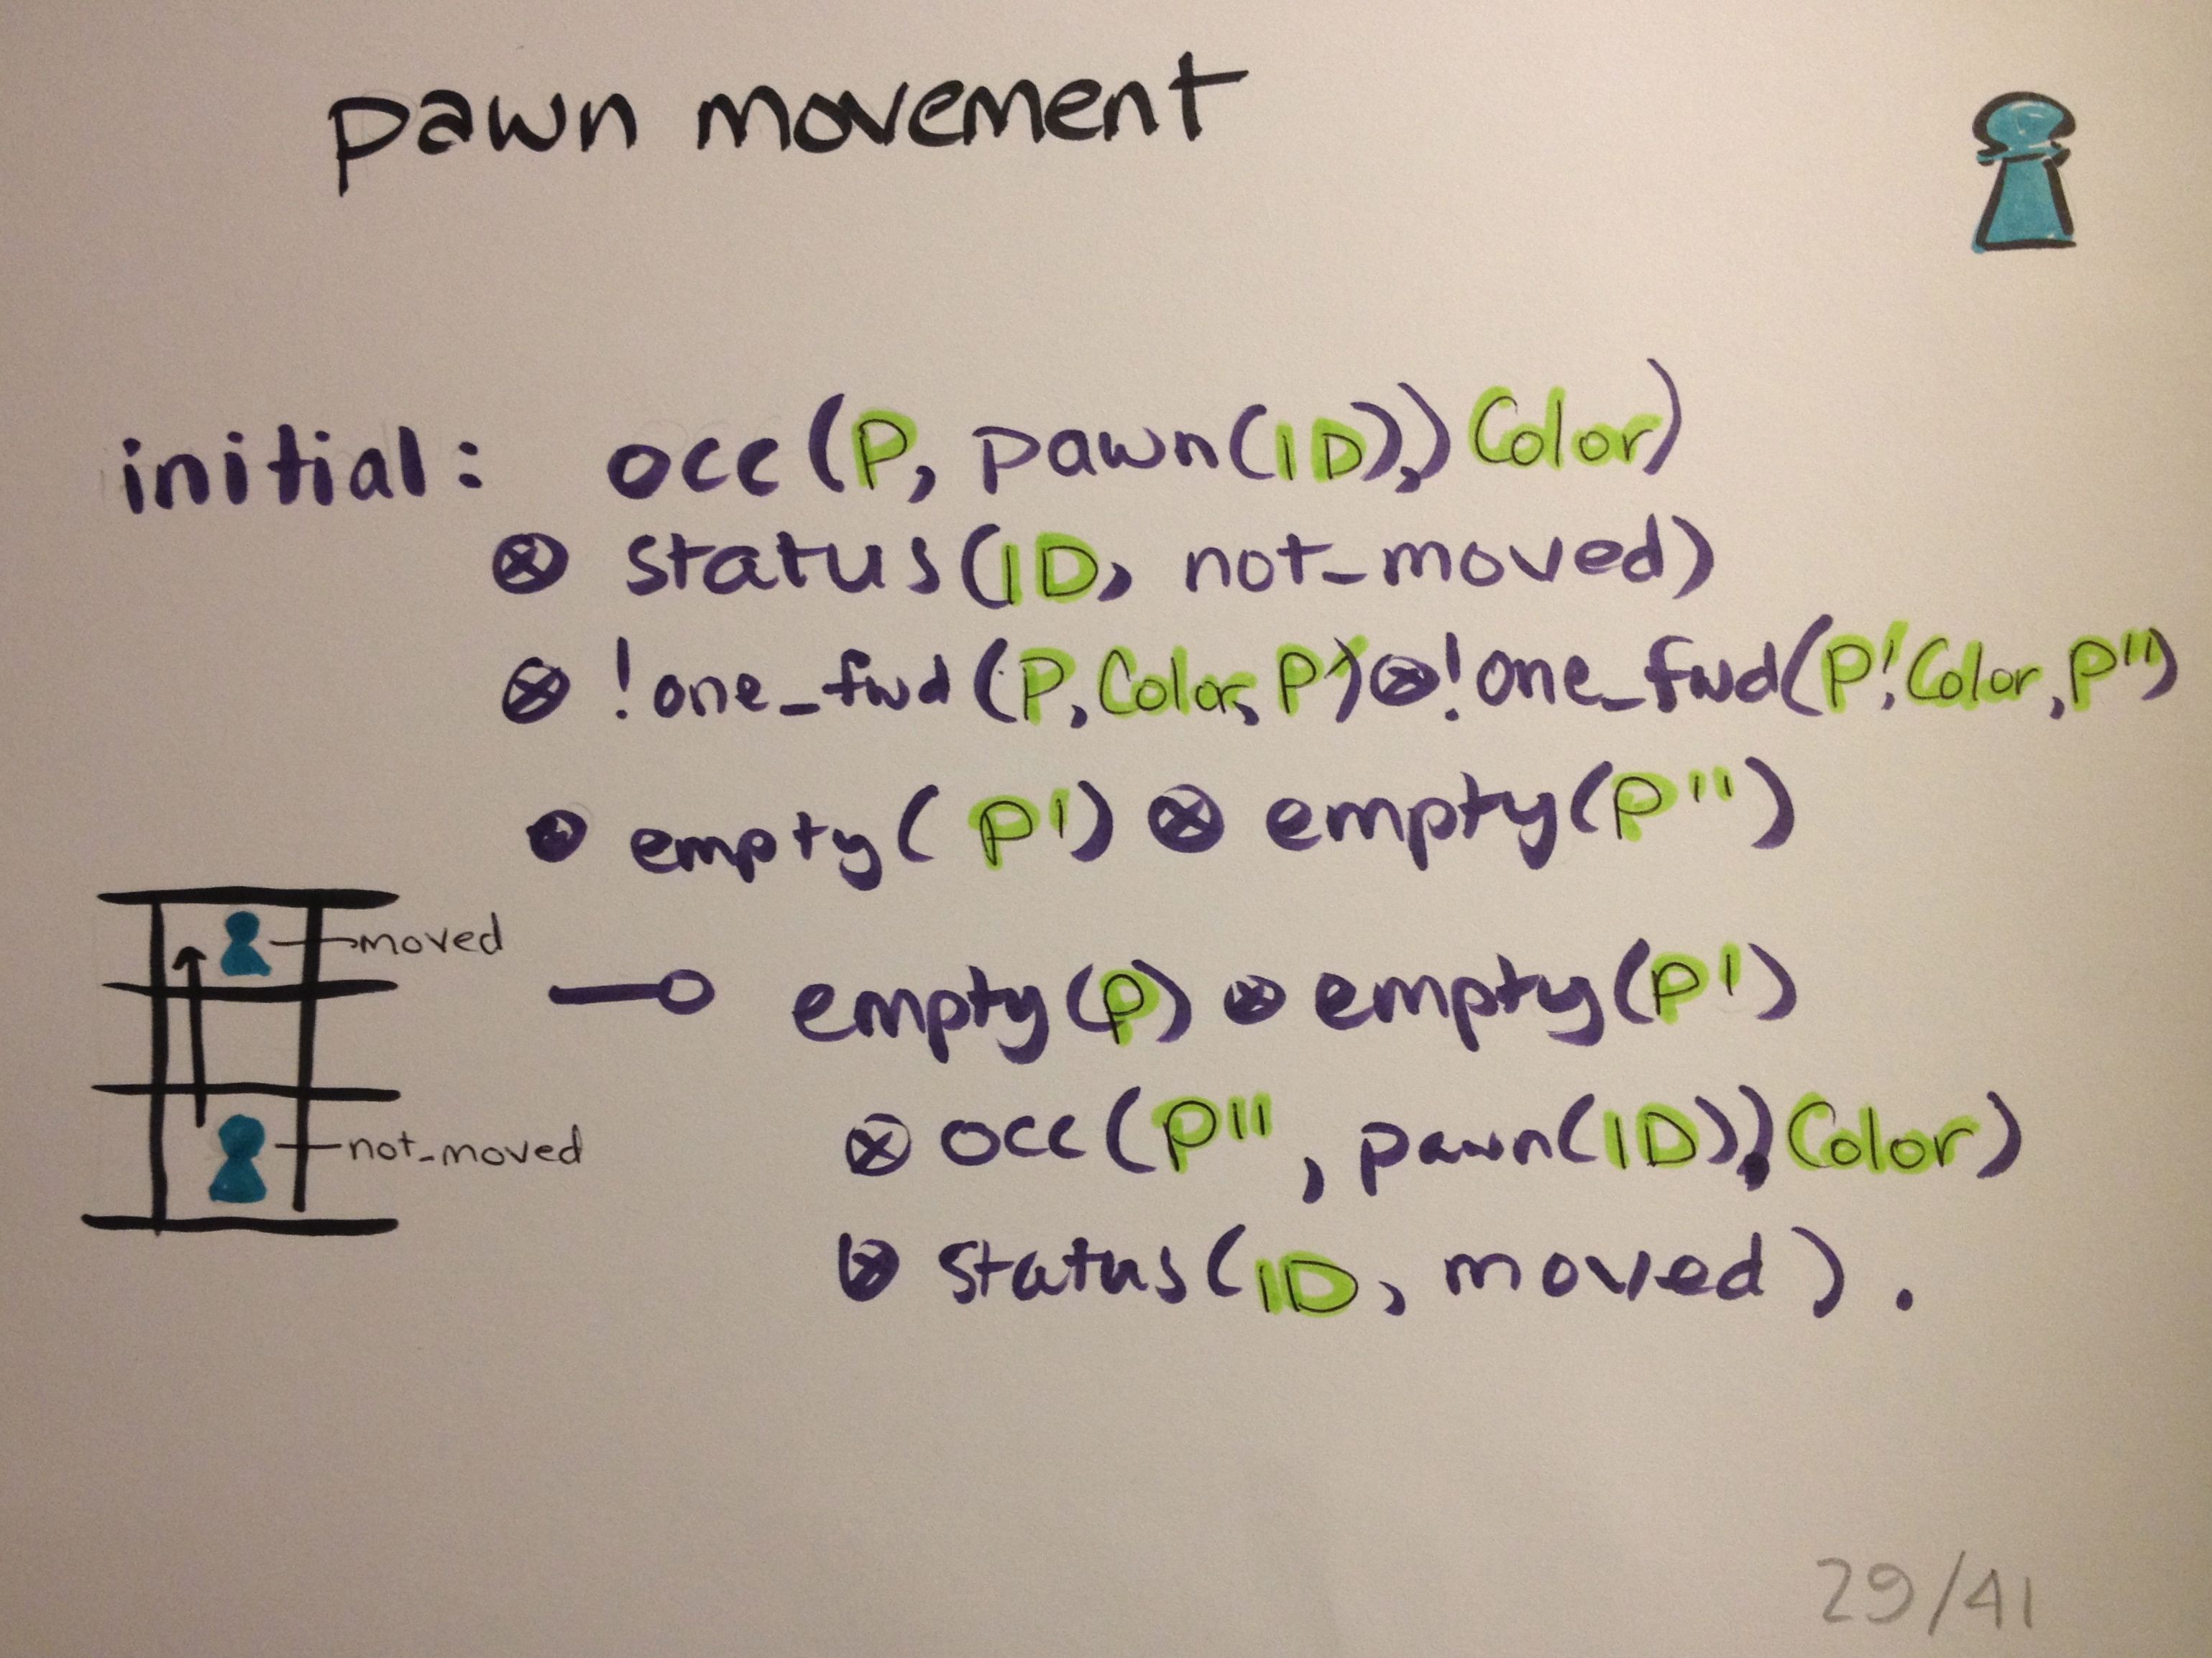 pawn movement
initial: occ(P, pawn(ID), Color)
⊗ status(ID, not_moved)
⊗ !one_fwd(P, Color, P') ⊗ !one_fwd(P', Color, P'')
⊗ empty(P') ⊗ empty(P'')
moved
⊸ empty(P) ⊗ empty(P')
⊗ occ(P'', pawn(ID), Color)
not_moved
⊗ status(ID, moved).
29/41